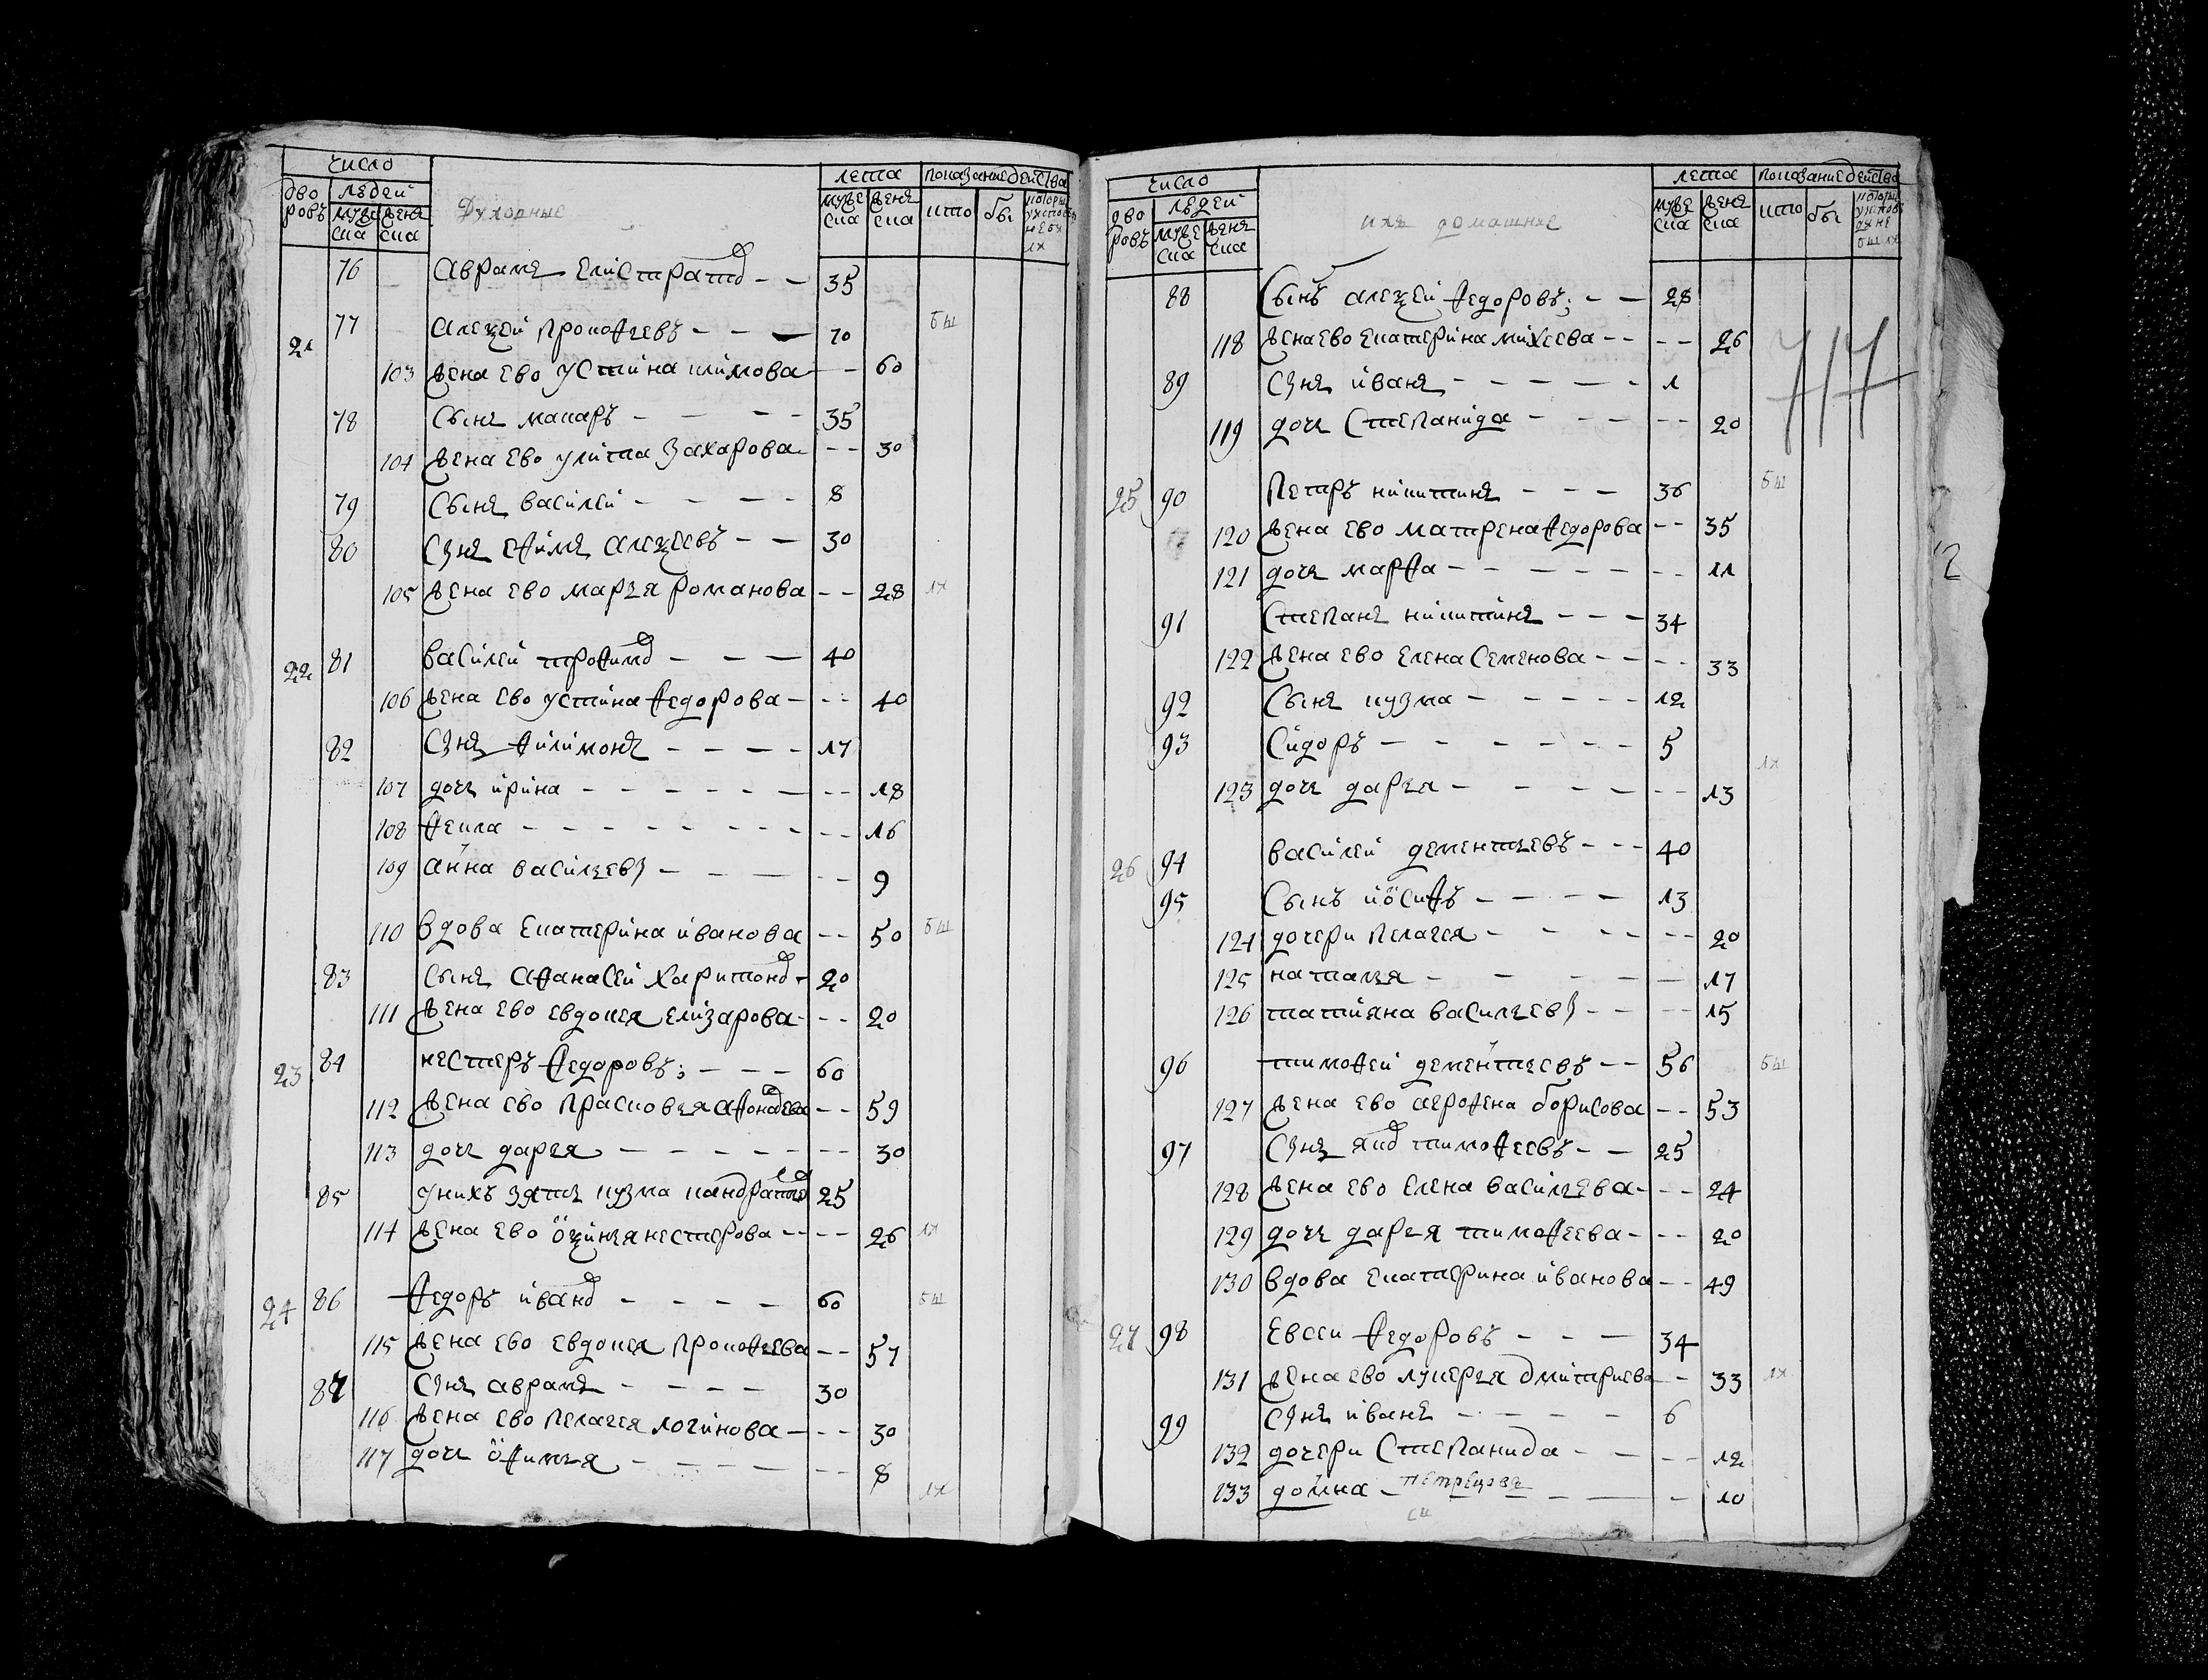 число лета показание действа
дво людей
ровъ мужеска женска Духовные мужеска женска кто бы
76 Аврамъ Елистратовъ - - 35
21 77 Алеѯей Прокофьевъ - - - 70 бы
103 жена ево устина климова - - 60
78 Сынъ макаръ - - - - 35
104 жена ево улита Захарова - - 30
79 Сынъ василей - - - - 8
80 Сынъ ефимъ алеѯеевъ - - 30
105 жена ево марья романова - - 28 ıх
22 81 василей трофимовъ - - - 40
106 жена ево устина федорова - - - 40
82 Сынъ филимонъ - - - - 17
107 дочь ирина - - - - - - - - 18
108 фекла - - - - - - - - - - 16
109 анна васильевы - - - - - 9
110 вдова екатерина иванова - - 50 бы
83 сынъ афанасей харитоновъ - 20
111 жена ево евдокея елизарова - - - 20
23 84 нестеръ федоровъ; - - - 60
112 жена ево прасковья - - 59
113 дочь дарья - - - - - - - - 30
85 унихъ зять кузма кандратьевъ 25
114 жена ево оѯинья нестерова - - - - 26 ıх
24 86 федоръ ивановъ - - - - 60 бы
115 жена ево евдокея прокофьева - - 57
87 Сынъ аврамъ - - - - 30
116 жена ево пелагея логинова - - - 30
117 дочь офимья - - - - - - 8
ıх
число лета показание действа
дво людей
ровъ мужеска женска ихъ домашние мужеска женска кто бы
88 Сынъ алеѯей федоровъ; - - 28
118 жена ево екатерина михеева - - - - 26
89 Сынъ иванъ - - - - - 1
119 дочь Степанида - - - - - - 20
717
25 90 Петръ никитинъ - - - 36 бы
120 жена ево матрена федорова - - 35
121 дочь марфа - - - - - - - - 11
91 Степанъ никитинъ - - - 34
122 жена ево елена Семенова - - - - 33
92 Сынъ кузма - - - - - 12
93 Сидоръ - - - - - - 5
ıх
123 дочь дарья - - - - - - 13
26 94 василей дементьевъ - - - 40
95 Сынъ иосифъ - - - - 13
124 дочери пелагея - - - - - - 20
125 наталья - - - - - 17
126 татияна васильевы - - - - 15
96 тимофей дементьевъ - - 56 бы
127 жена ево агрофена борисова - - 53
97 Сынъ яковъ тимофеевъ - - 25
128 жена ево елена васильева - - - 24
129 дочь дарья тимофеева - - - 20
130 вдова екатерина иванова - - 49
27 98 евсеи федоровъ - - - 34
131 жена ево лукерья дмитриева - 33 ıх
99 сынъ иванъ - - - - - 6
132 дочери Степанида - - - - 12
133 домна - - - - 10